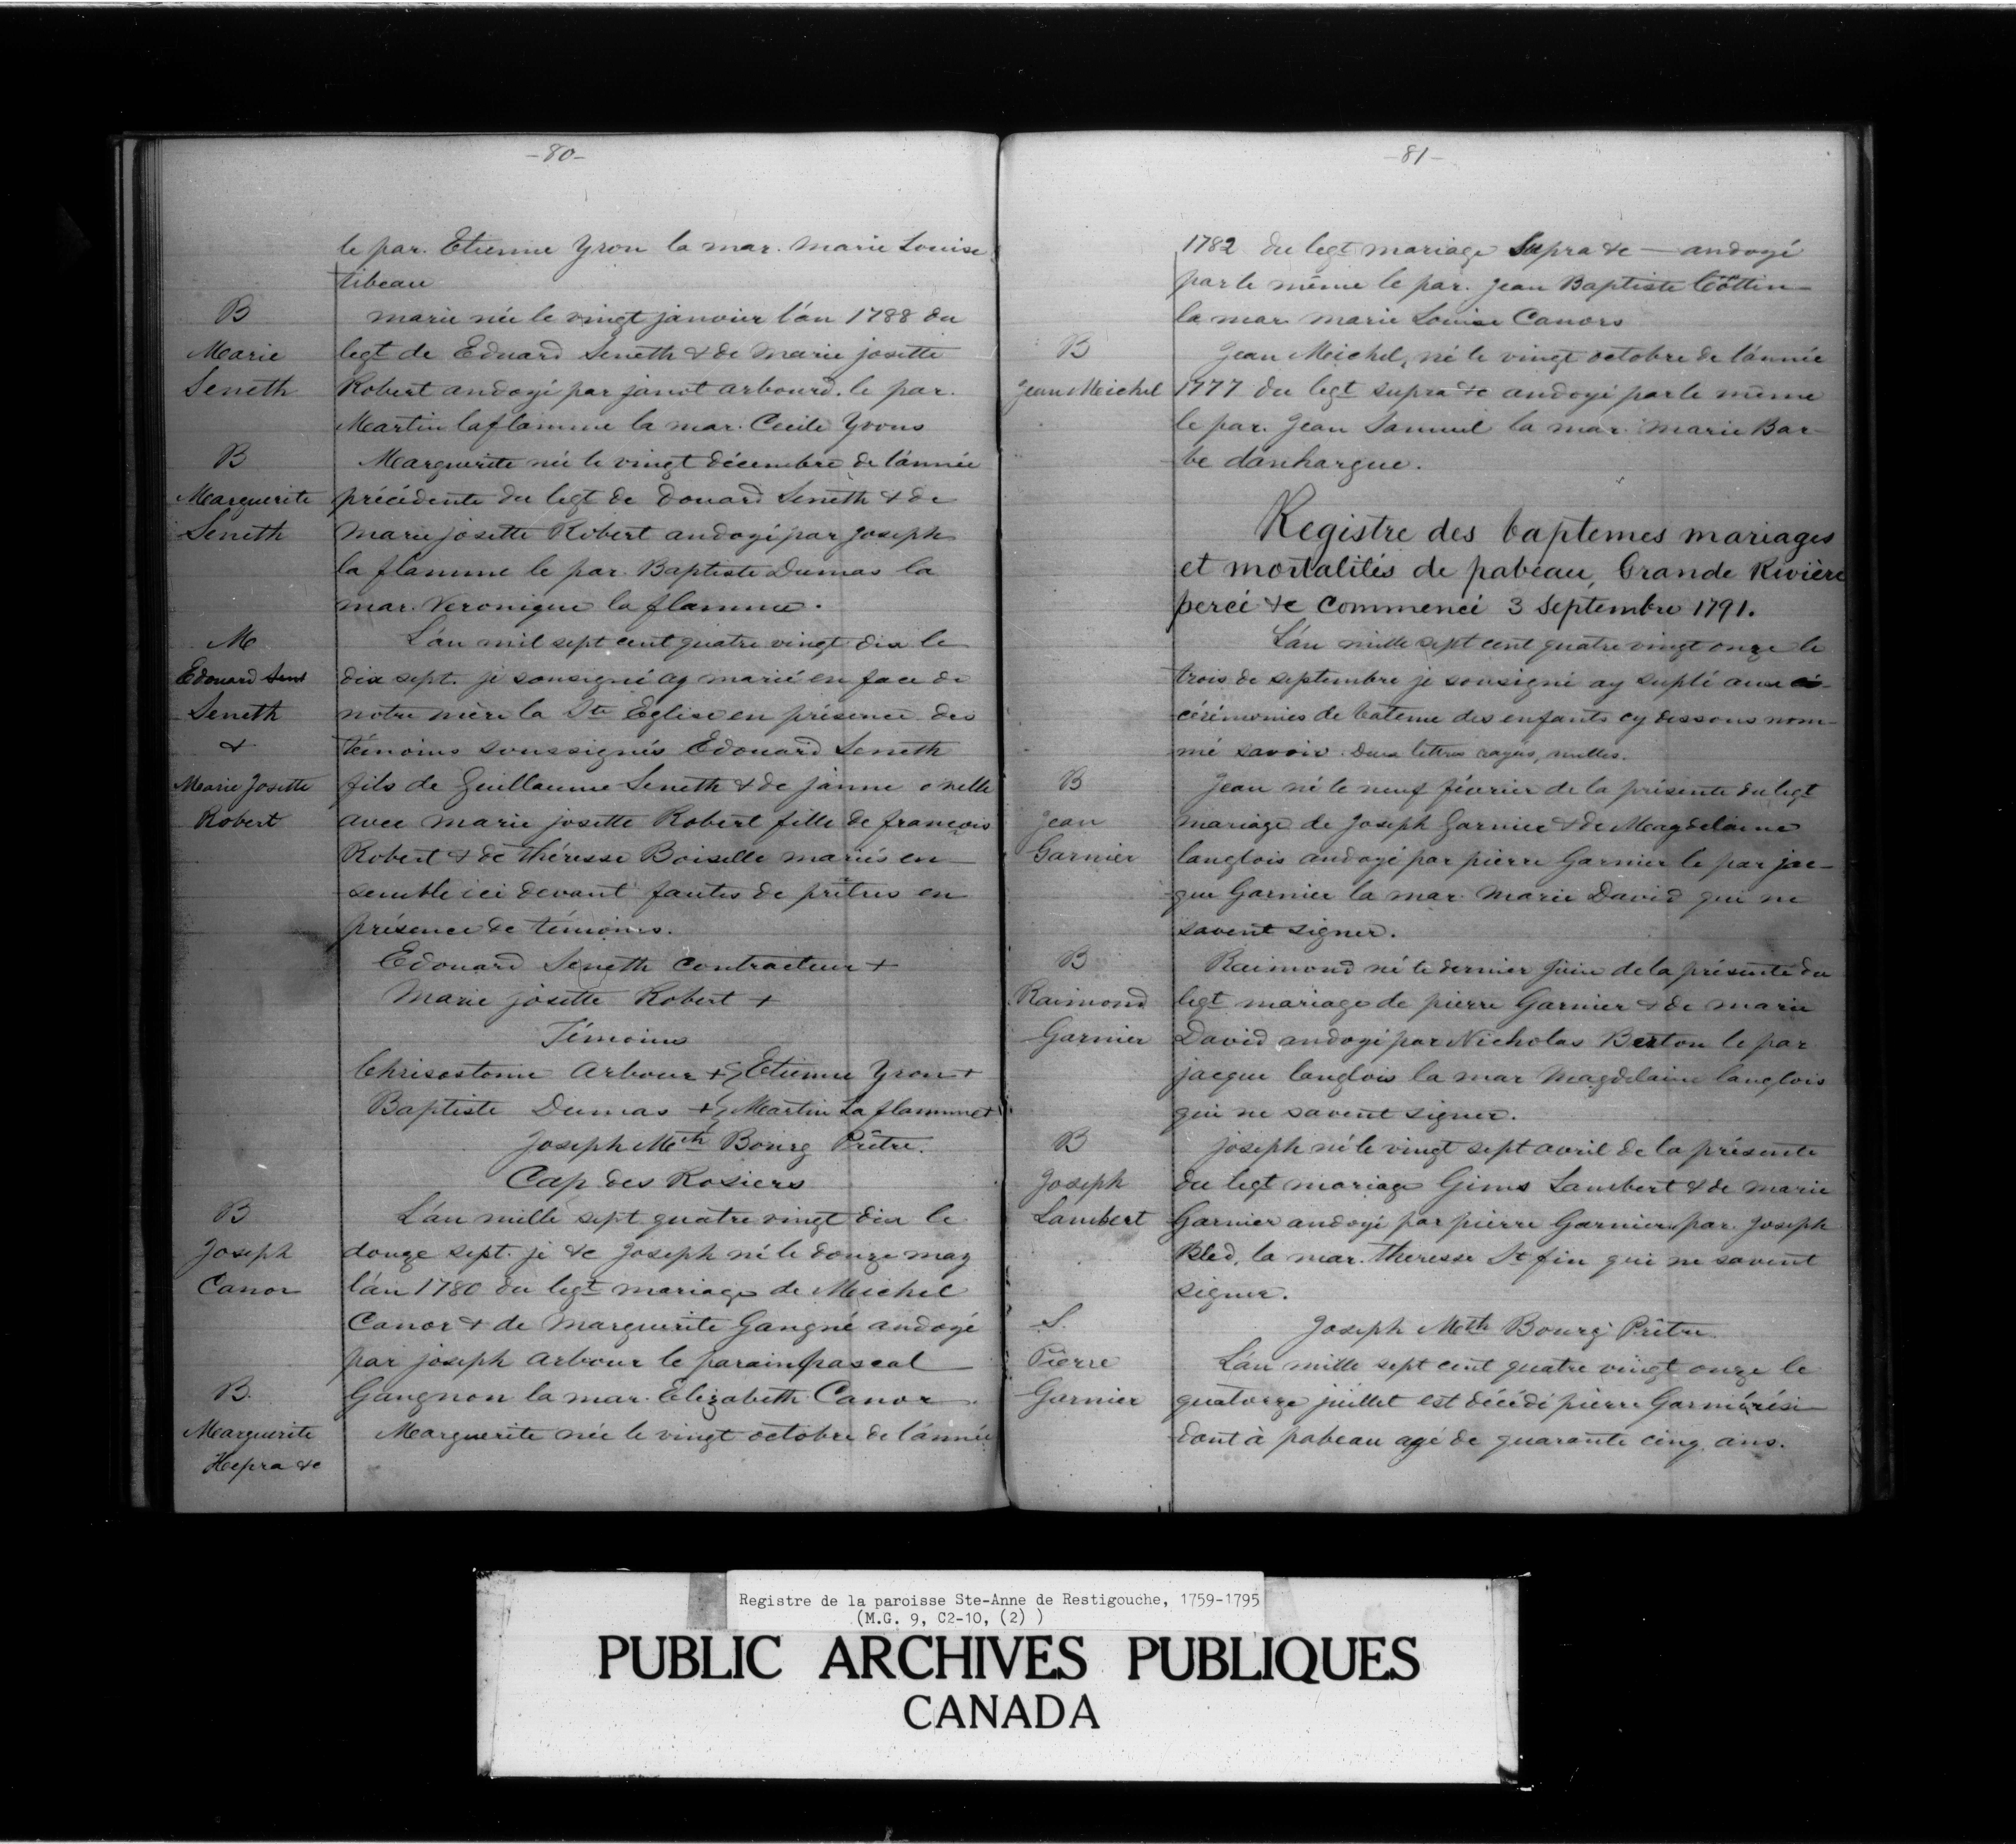 -80-
le par. Etienne Yron la mar. marie Louise
tibeau
B
Marie
Seneth
marie née le vingt janvier l'án 1788 du
legt de Eduard Seneth & de Marie josette
Robert andoyé par janot arbourd. le par.
Martin laflamme la mar. Cecile Yvons
B
Marguerite
Seneth
Marguerite née le vingt décembre de l'ánnée
précédente du legt de Douard Seneth & de
marie josette Robert andoyé par Joseph
la flamme le par. Baptiste Dumas la
mar. Veronique la flamme.
M
Edouard
Seneth
&
Marie Josette
Robert
L'án mil sept cent quatre vingt dix le
dix sept. je sousigné ay marié en face de
notre mère la Ste Eglise en présence des
témoins soussignés Edouard Seneth
fils de Guillaume Seneth & de janne onelle
avec marie josette Robert fille de francois
Robert & de théresse Boiselle mariés en-
semble ici devant fautes de prêtres en
présence de témoins.
Edouard Seneth contracteur +
Marie josette Robert +
Témoins
Chrisostome Arbour + & Etienne Yron +
Baptiste Dumas + & Martin La flamme +
Joseph Mth Bourg Prêtre.
Cap des Rosiers
B
Joseph
Canor
L'án mille sept quatre vingt dix le
douze sept. je &c Joseph né le douze may
l'án 1780 du legt mariage de Meichel
Canor & de Marguerite Gangné andoyé
par joseph Arbour le parain pascal
Gangnon la mar. Elizabeth Canor.
B.
Marguerite
Hepra &c
Marguerite née le vingt octobre de l'ánnée
-81-
1782 du legt mariage Supra &c — andoyé
par le même le par. Jean Baptiste Cottin
la mar marie Louise Canors
B
Jean Meichel
Jean Meichel, né le vingt octobre de l'ánnée
1777 du legt supra &c andoyé par le même
le par. Jean Samuel la mar. Marie Bar-
be danhargue.
Registre des baptemes mariages
et mortalités de pabéau, Grande Rivière
percé &c commencé 3 Septembre 1791.
L'án mille sept cent quatre vingt onze le
trois de septembre je sousigné ay suplé aux
cérémonies de bateme des enfants cy dessous nom-
mé savoir Deux lettres rayés, nulles.
B
Jean
Garnier
Jean né le neuf février de la présente du legt
mariage de Joseph Garnier & de Magdelaine
langlois andoyé par pierre Garnier le par jac-
que Garnier la mar. Marie David qui ne
savent signer.
B
Raimond
Garnier
Raimond né le dernier juin de la présente du
legt mariage de pierre Garnier & de marie
David andoyé par Nicholas Berton le par
jacque langlois la mar Magdelaine langlois
qui ne savent signer.
B
Joseph
Lambert
joseph né le vingt sept avril de la présente
du legt mariage Gims Lambert & de marie
Garnier andoyé par pierre Garnier par. Joseph
Bled, la mar. theresse St fin qui ne savent
signer.
Joseph Mth Bourg Prêtre.
S.
Pierre
Garnier
L'án mille sept cent quatre vingt onze le
quatorze juillet est décédé pierre Garnié rési-
dant à pabeau agé de quarante cinq ans.
Registre de la paroisse Ste-Anne de Restigouche, 1759-1795
(M.G. 9, C2-10, (2) )
PUBLIC ARCHIVES PUBLIQUES
CANADA